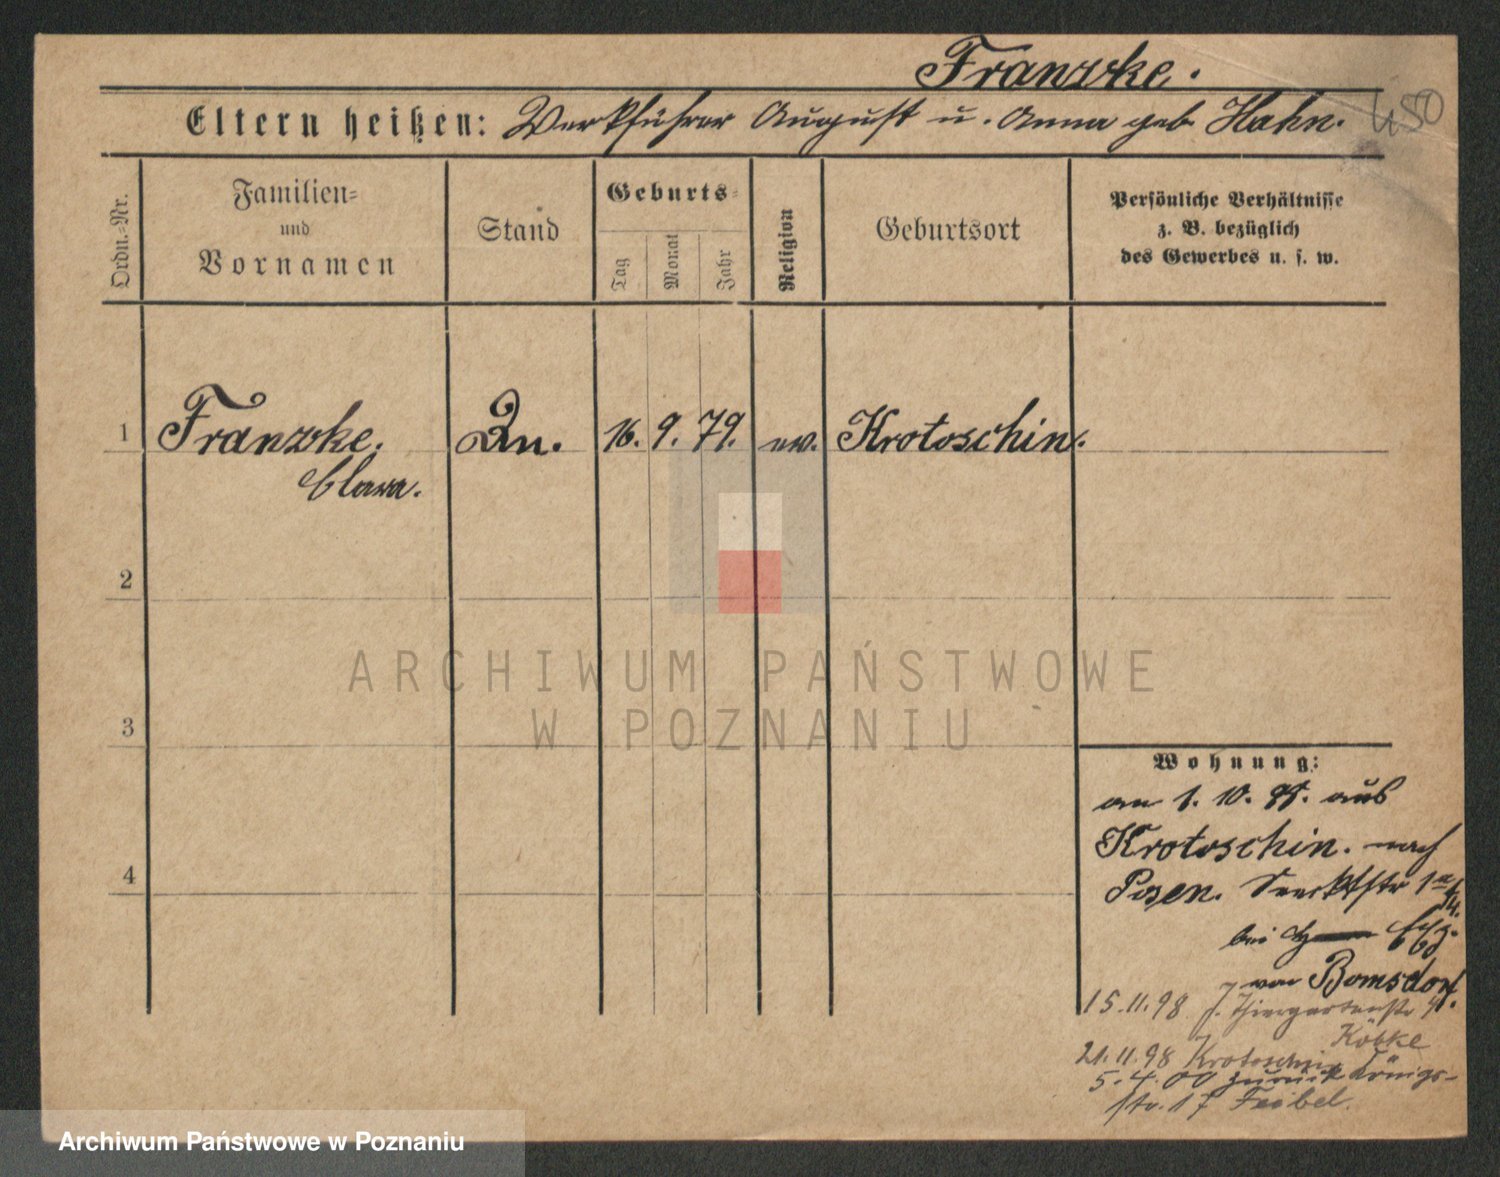 Franzke.
450
Eltern heißen: Werkführer August u. Anna geb. Hahn.
Ordn.-Nr.
Familien-
und
Vornamen
Stand
Geburts-
Tag
Monat
Jahr
Religion
Geburtsort
Persönliche Verhältnisse
z. B. bezüglich
des Gewerbes u. s. w.
1 Franzke. 16. 9. 79. ev. Krotoschin.
Clara.
2
3
4
ARCHIWUM PAŃSTWOWE
W POZNANIU
Wohnung:
am 1. 10. aus
Krotoschin. nach
Posen.
bei
von Bomsdorf.
15.11.98 Thiergartenstr
Köbke
21.11.98 Krotoschin
5.4.00 zurück Königs-
str. 17 Feibel.
Archiwum Państwowe w Poznaniu